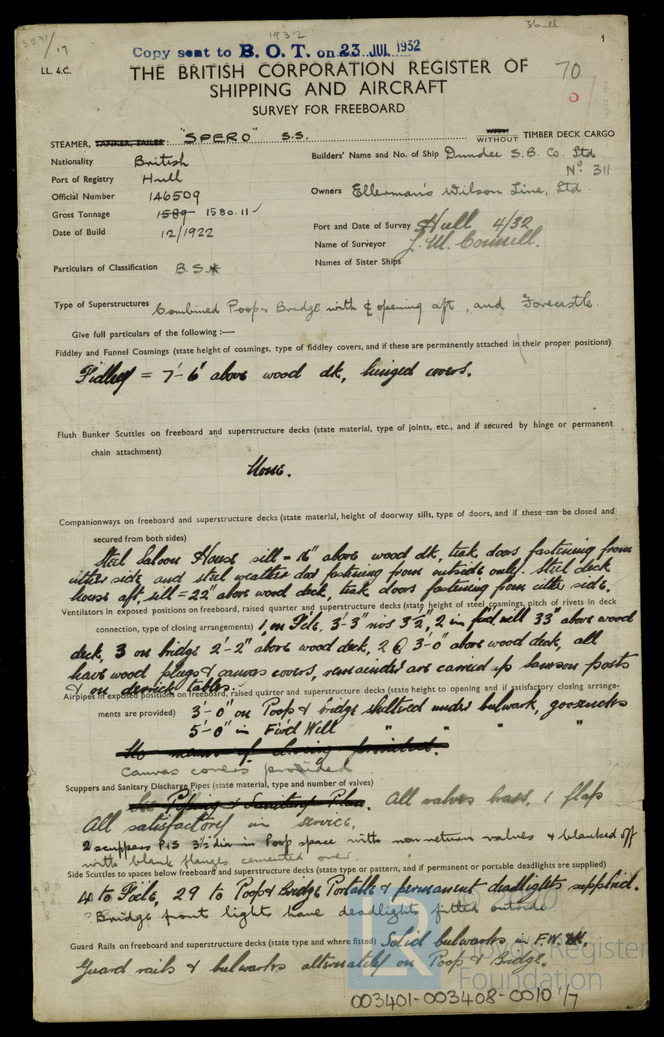 3231/17
1932
Copy sent to B. O. T. on 23 JUL 1932
Hull
1
LL. 4.C.
THE BRITISH CORPORATION REGISTER OF
SHIPPING AND AIRCRAFT
SURVEY FOR FREEBOARD
70
STEAMER, TANKER, SAILER "SPERO" S.S. WITH WITHOUT TIMBER DECK CARGO
Nationality British
Builders' Name and No. of Ship Dundee S.B. Co. Ltd
No. 311
Port of Registry Hull
Official Number 146509
Owners Ellerman's Wilson Line, Ltd
Gross Tonnage 1589 1580.11
Date of Build 12/1922
Port and Date of Survey Hull 4/32
Name of Surveyor J. M. Connell.
Names of Sister Ships
Particulars of Classification B.S.*
Type of Superstructures Combined Poop & Bridge with opening aft, and Forecastle.
Give full particulars of the following :—
Fiddley and Funnel Coamings (state height of coamings, type of fiddley covers, and if these are permanently attached in their proper positions)
Fidley = 7'-6" above wood dk, hinged covers.
Flush Bunker Scuttles on freeboard and superstructure decks (state material, type of joints, etc., and if secured by hinge or permanent
chain attachment)
None.
Companionways on freeboard and superstructure decks (state material, height of doorway sills, type of doors, and if these can be closed and
secured from both sides)
Steel Saloon House sill = 16" above wood dk, teak doors fastening from
either side and steel weather door fastening from outside only. Steel deck
house aft, sill = 22" above wood deck, teak doors fastening from either side.
Ventilators in exposed positions on freeboard, raised quarter and superstructure decks (state height of steel coamings, pitch of rivets in deck
connection, type of closing arrangements) 1 on Fcle, 3'-3" 3½", 2 in fwd well 33" above wood
deck, 3 on bridge 2'-2" above wood deck, 2 @ 3'-0" above wood deck, all
have wood plugs & canvas covers, remainder are carried up samson posts
& on derrick tables.
Airpipes in exposed position on freeboard, raised quarter and superstructure decks (state height to opening and if satisfactory closing arrange-
ments are provided) 3'-0" on Poop & bridge sheltered under bulwark, goosenecks
5'-0" in Fwd Well " " "
No means of closing provided.
Canvas covers provided
Scuppers and Sanitary Discharge Pipes (state material, type and number of valves)
See Piping & Sanitary Plan. All valves brass, 1 flap
All satisfactory in service.
2 scuppers P&S 3½" dia in Poop space with non return valves & blanked off
with blank flanges cemented over.
Side Scuttles to spaces below freeboard and superstructure decks (state type or pattern, and if permanent or portable deadlights are supplied)
4 to Fcle, 29 to Poop & Bridge Portable & permanent deadlights supplied.
Bridge front lights have deadlights fitted outside.
Guard Rails on freeboard and superstructure decks (state type and where fitted) Solid bulwarks in F.W.
Guard rails & bulwarks alternately on Poop & Bridge.
© 2020
Lloyd's Register
Foundation
003401-003408-0010 1/7